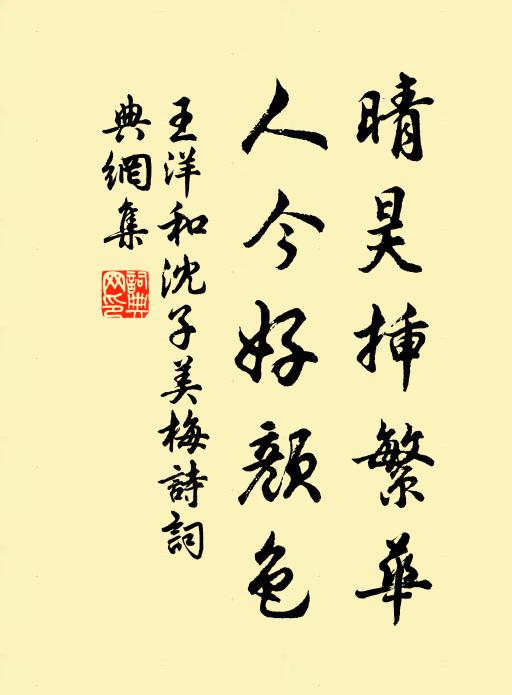 晴昊挿繁華
人今好顔色
王洋和沈子美梅詩詞
典網集
詞典網印